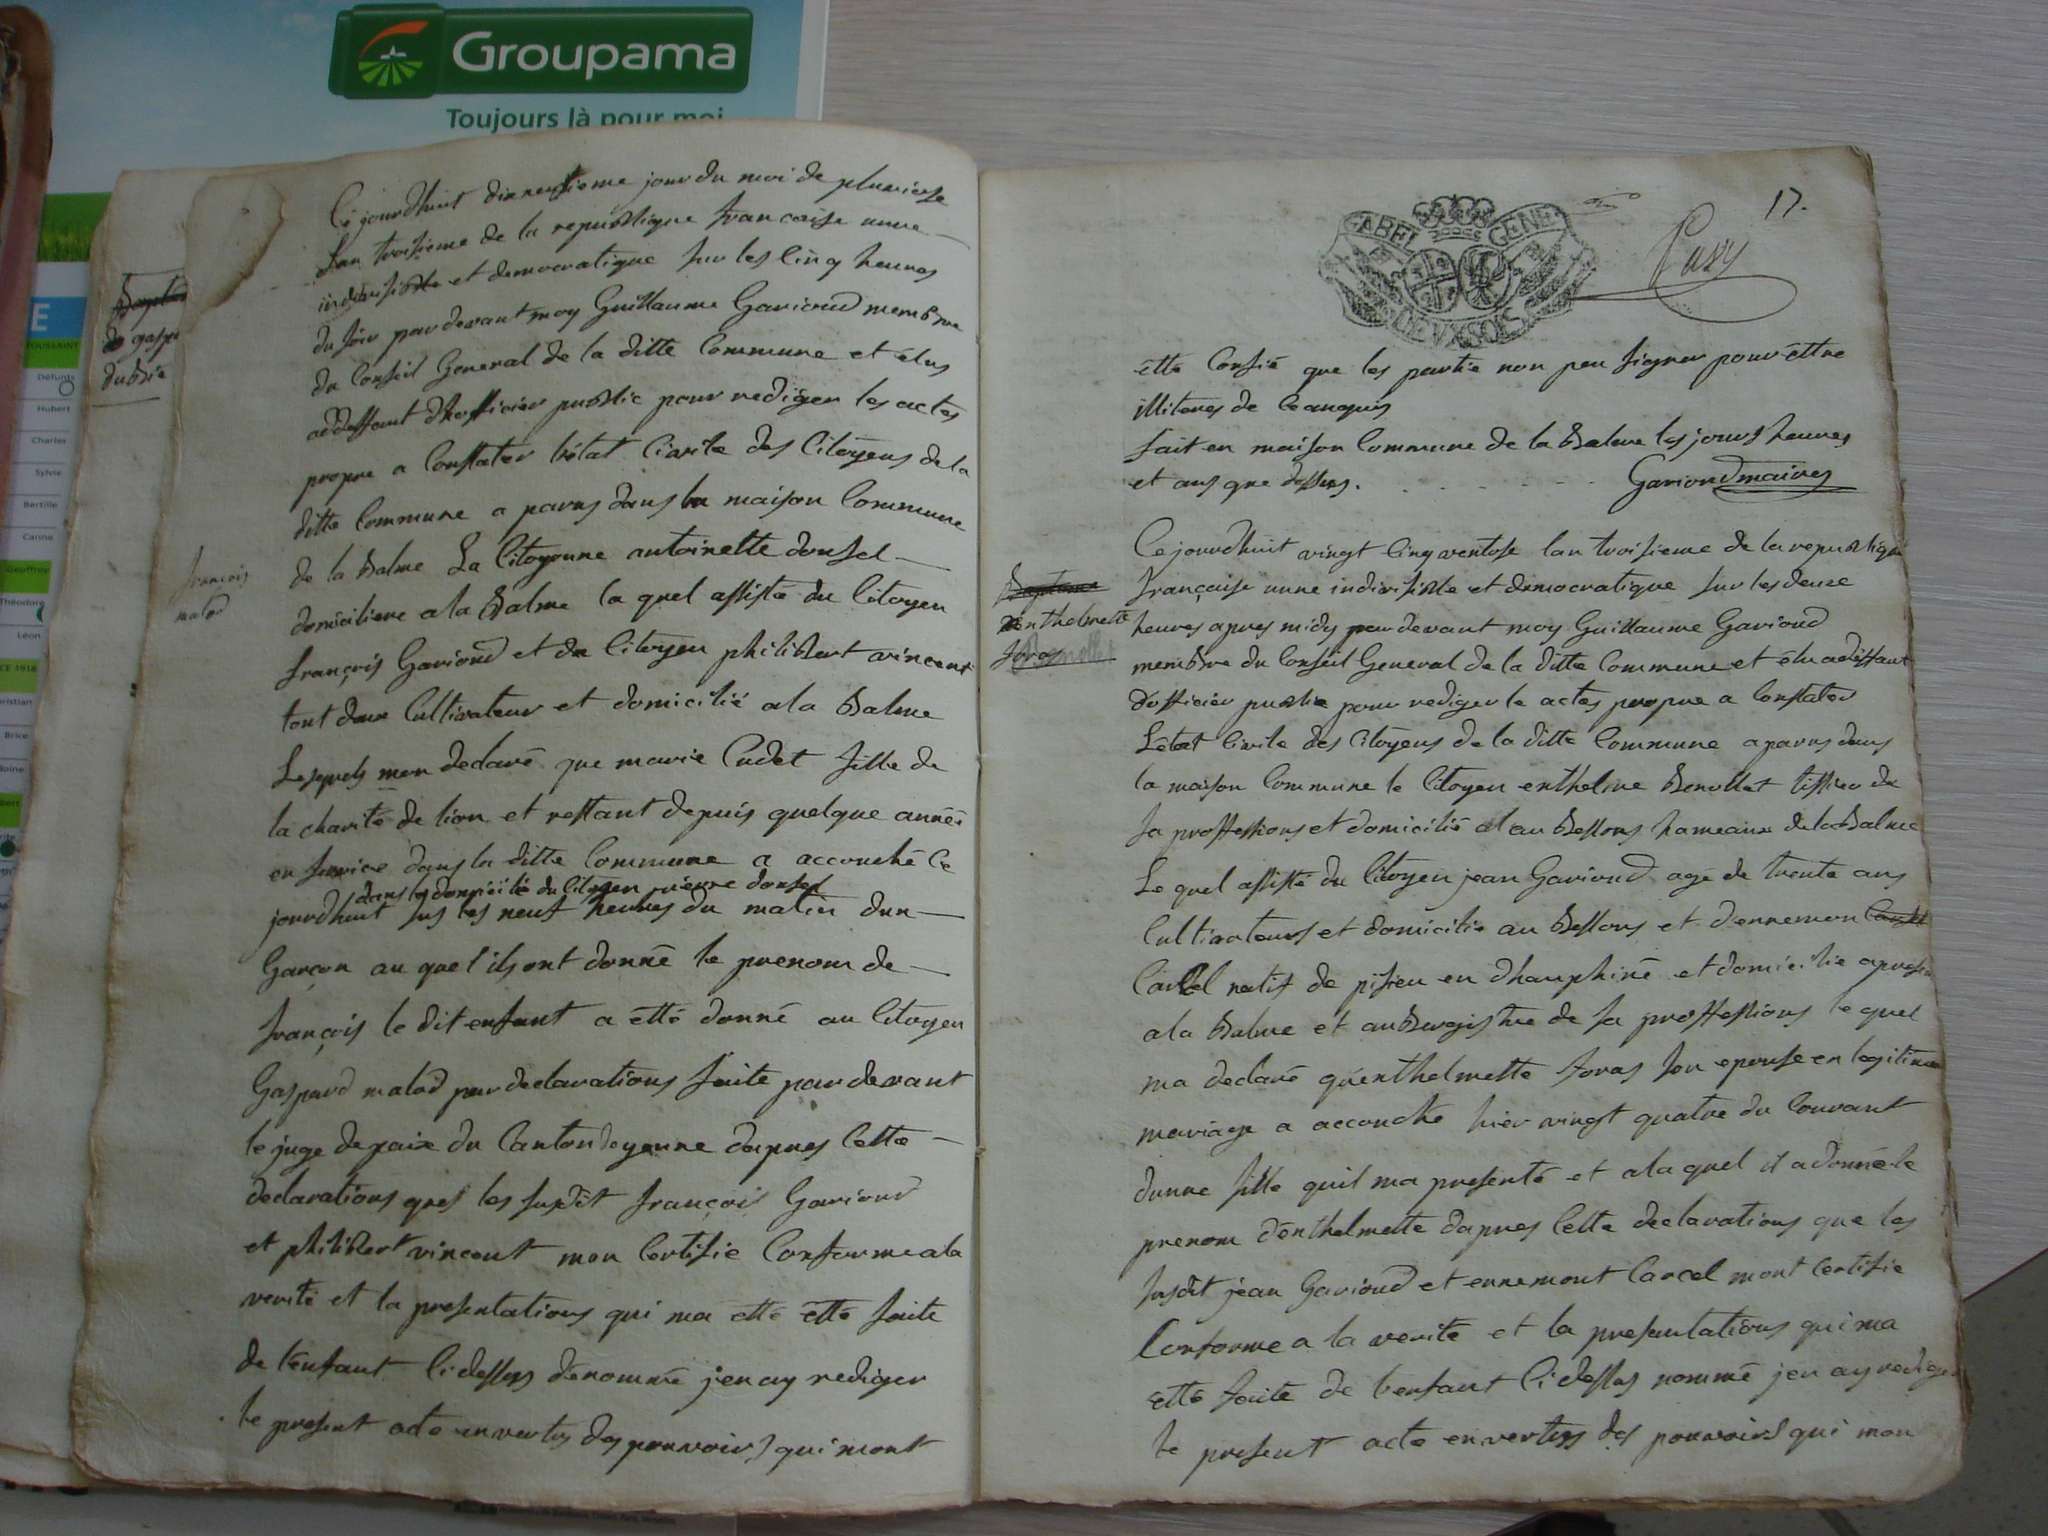 Groupama
Toujours là pour moi
E
TOUSSAINT
Défunts
Hubert
Charles
Sylvie
Bertille
Carine
Geoffroy
Théodore
Léon
CE 1918
Christian
Brice
Ce jourdhuit dixneufieme jour du moi de pluviose
Lan troisieme de la republique francaise unne
indivisible et democratique sur les cinq heures
du soir pardevant moy Guillaume Gavioud membre
du Conseil General de la ditte Commune et élus
addissant dhofficier public pour rediger les actes
propre a Constater létat Civile des Citoyens de la
ditte Commune a parus dans la maison Commune
de la Balme La Citoyenne antoinette donsel
domiciliere a la Balme la quel assisté du Citoyen
françois Gavioud et du Citoyen philibert vincent
tout deux Cultivateur et domicilié a la Balme
Lesquels mon declaré que marie Cadet fille de
la charité de lion et restant depuis quelque année
en service dans la ditte Commune a accouché Ce
dans le domicile du Citoyen pierre donsel
jourdhuit sus les neuf heures du matin dun
Garçon au quel ils ont donné le prenom de
françois le dit enfant a étté donné au Citoyen
Gaspard malod par declarations faite pardevant
le juge de paix du Canton deyenne dapres Cette
declarations ques les susdit françois Gavioud
et philibert vincent mon Certifie Conforme a la
verité et la presentations qui ma etté étté faite
de lenfant Cidessus dénommé jen ay rediger
le present acte en vertus des pouvoirs qui mont
de gaspa
dubié
françois
malod
GABEL GENE
DEUX SOLS
17.
étté Confié que les partie non peu signer pour éttre
illiteres de Ce anquis
fait en maison Commune de la Balme les jours heures
et ans que dessus. Gavioud maires
Ce jourdhuit vingt Cinq ventose lan troisieme de la republique
française unne indivisible et democratique sur les deux
heures apres midy pardevant moy Guillaume Gavioud
membre du Conseil General de la ditte Commune et élu adissant
dofficier public pour rediger le actes propre a Constater
Létat Civile des Citoyens de la ditte Commune a parus dans
la maison Commune le Citoyen enthelme Benollet tissier de
sa proffessions et domicilié et au Bessons hameaux de la Balme
Le quel assisté du Citoyen jean Gavioud agé de trente ans
Cultivateurs et domicilie au Bessons et dennemon
Carcel natif de pisieu en dhauphiné et domicilie apresen
a la Balme et aubergistre de sa proffessions le quel
ma declaré quenthelmette foras son epouse en legitime
mariage a accouche hier vingt quatre du Courant
dunne fille quil ma presenté et a la quel il a donné le
prenom dénthelmette dapres Cette declarations que les
susdit jean Gavioud et ennemont Carcel mont Certifie
Conforme a la verite et la presentations qui ma
etté faite de lenfant Cidessus nommé jen ay redige
le present acte en vertus des pouvoirs qui mon
Bapteme
denthelmette
foras